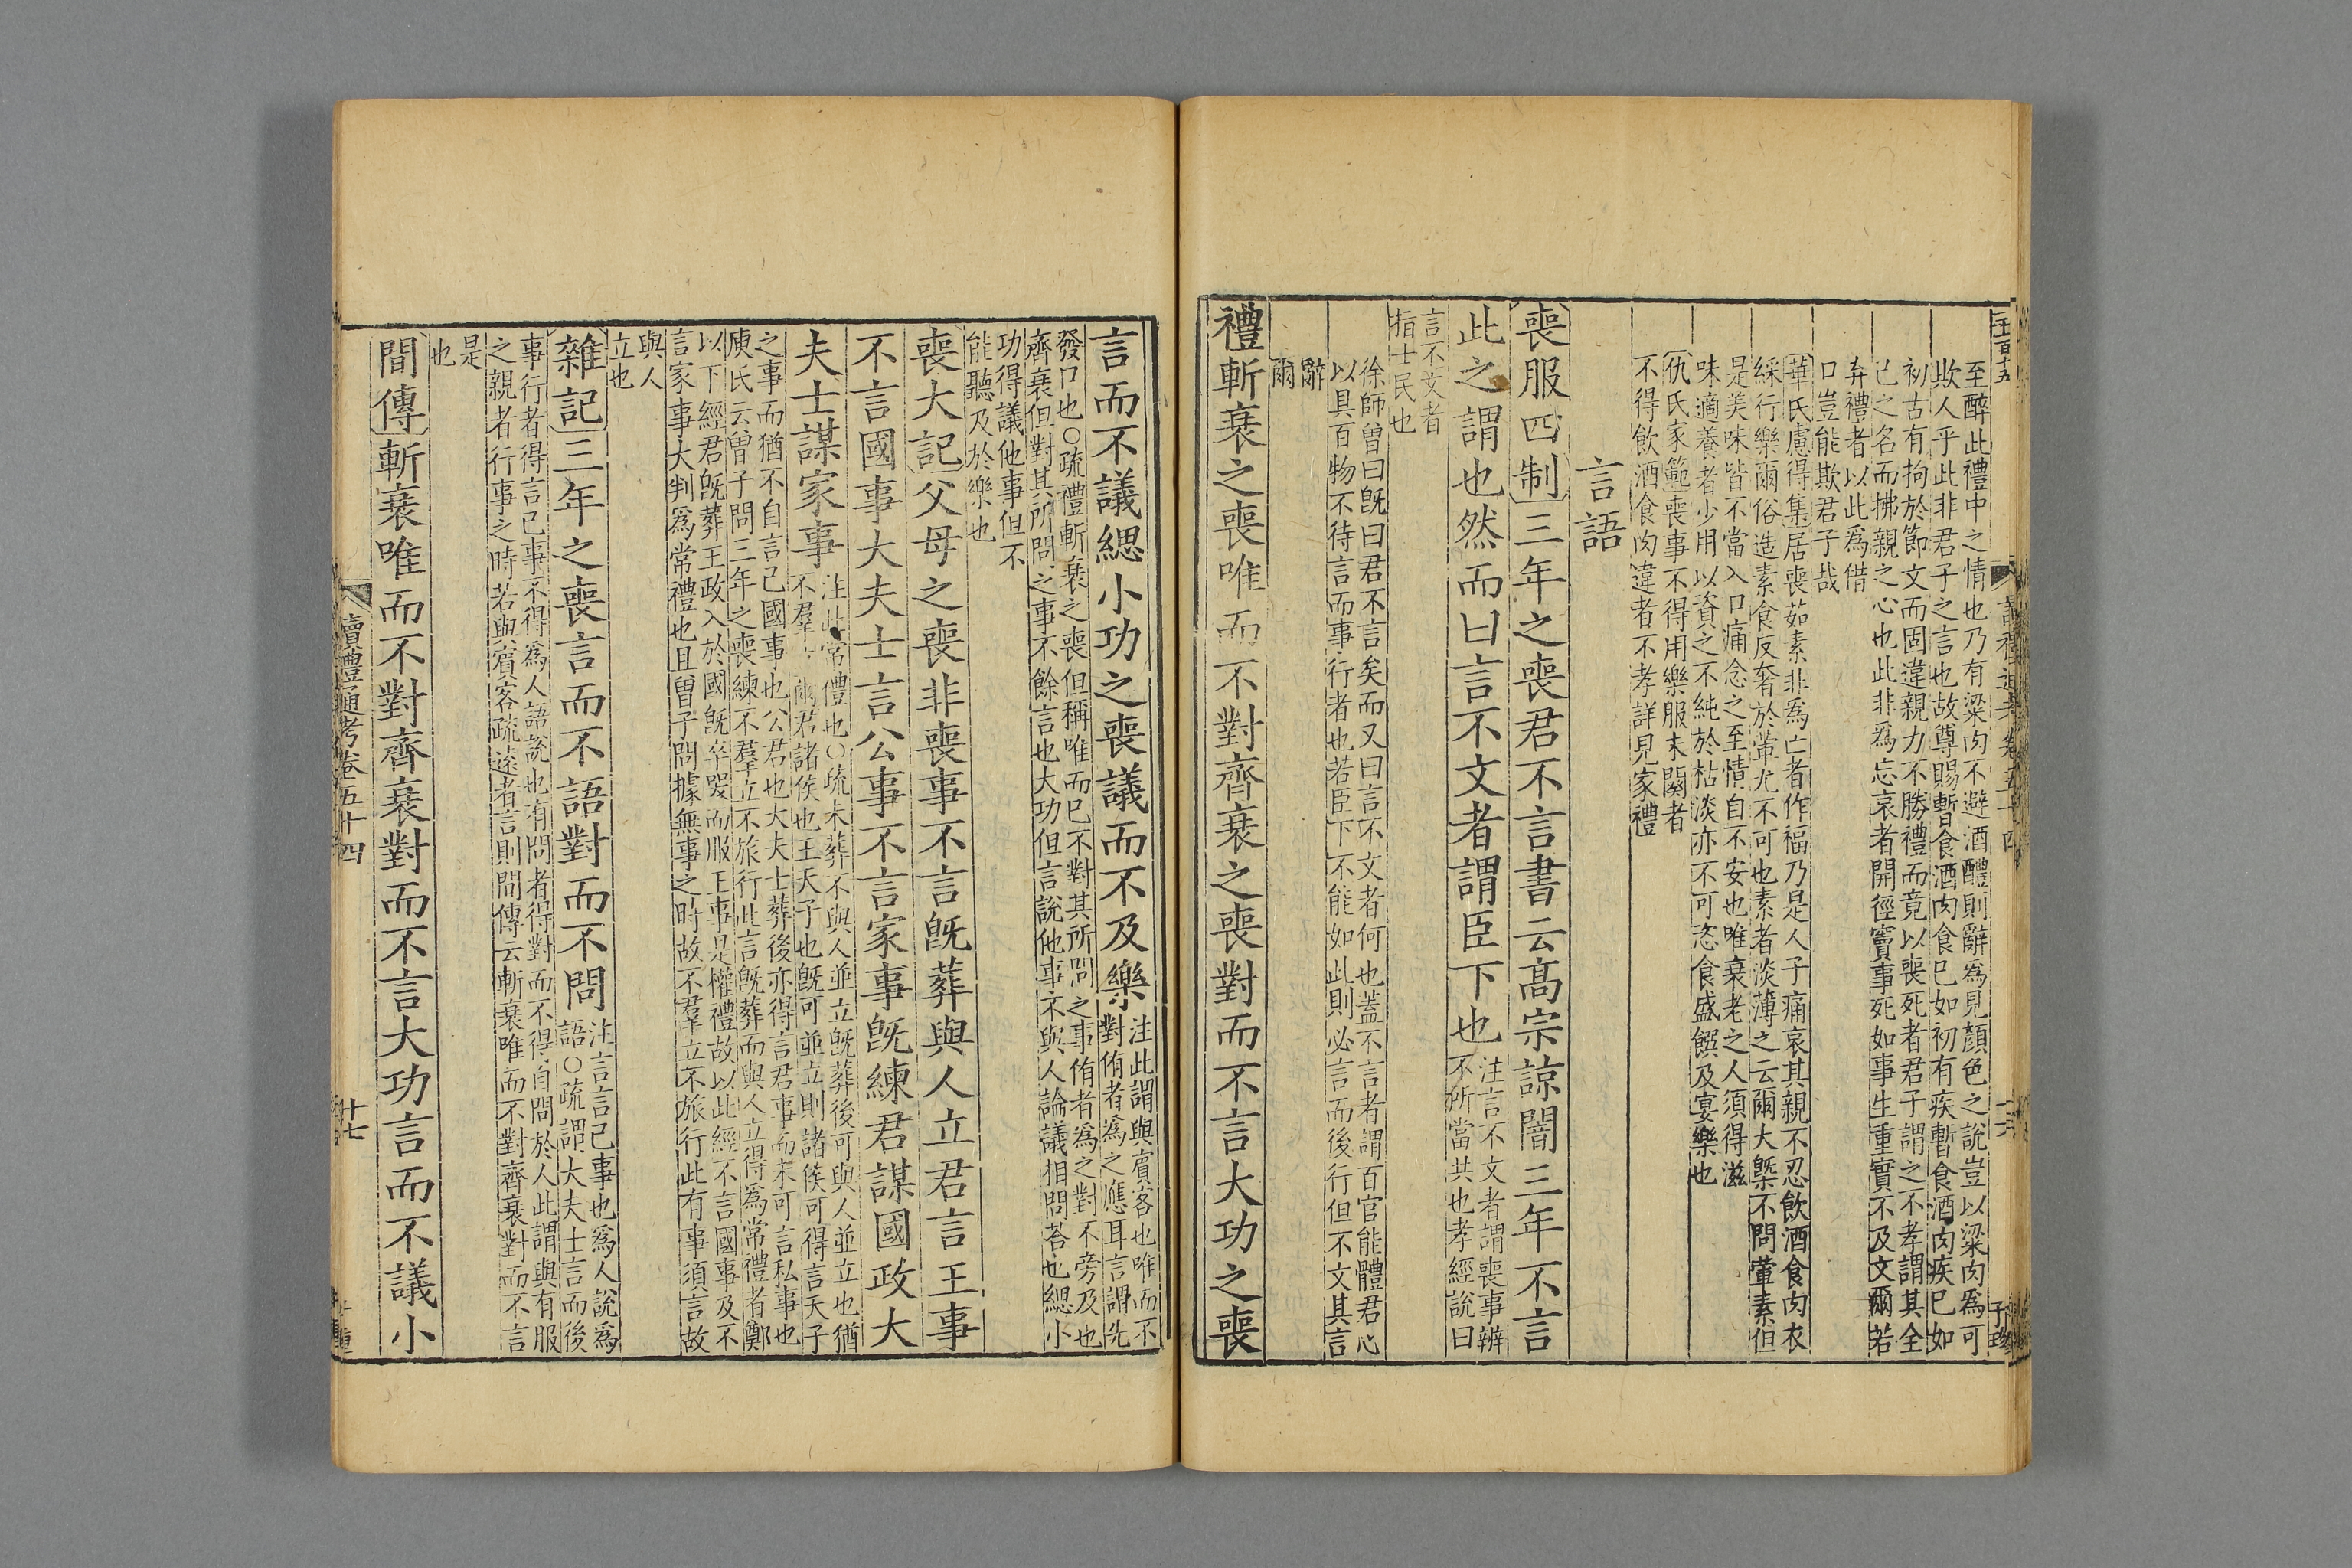 至醉此禮中之情也乃有粱肉不避酒醴則辭為見顏色之說豈以粱肉為可
欺人乎此非君子之言也故尊賜暫食酒肉食已如初有疾暫食酒肉疾已如
初古有拘於節文而固違親力不勝禮而竟以喪死者君子謂之不孝謂其全
己之名而拂親之心也此非為忘哀者開徑竇事死如事生重實不及文爾若
弃禮者以此為借
口豈能欺君子哉
華氏慮得集居喪茹素非為亡者作福乃是人子痛哀其親不忍飲酒食肉衣
綵行樂爾俗造素食反奢於葷尤不可也素者淡薄之云爾大槩不問葷素但
是美味皆不當入口痛念之至情自不安也唯衰老之人須得滋
味適養者少用以資之不純於枯淡亦不可恣食盛饌及宴樂也
仇氏家範喪事不得用樂服未闋者
不得飲酒食肉違者不孝詳見家禮
言語
喪服四制三年之喪君不言書云髙宗諒闇三年不言
此之謂也然而曰言不文者謂臣下也
注言不文者謂喪事辨
不所當共也孝經說曰
言不文者
指士民也
徐師曽曰旣曰君不言矣而又曰言不文者何也蓋不言者謂百官能體君心
以具百物不待言而事行者也若臣下不能如此則必言而後行但不文其言
辭
爾
禮斬衰之喪唯而不對齊衰之喪對而不言大功之喪
言而不議緦小功之喪議而不及樂
注此謂與賓客也唯而不
對侑者為之應耳言謂先
發口也○疏禮斬衰之喪但稱唯而已不對其所問之事侑者為之對不旁及也
齊衰但對其所問之事不餘言也大功但言說他事不與人論議相問荅也緦小
功得議他事但不
能聽及於樂也
喪大記父母之喪非喪事不言旣葬與人立君言王事
不言國事大夫士言公事不言家事旣練君謀國政大
夫士謀家事
注此常禮也○疏未葬不與人並立旣葬後可與人並立也猶
不羣立爾君諸侯也王天子也旣可並立則諸侯可得言天子
之事而猶不自言己國事也公君也大夫士葬後亦得言君事而未可言私事也
庾氏云曽子問三年之喪練不羣立不旅行此言旣葬而與人立得為常禮者鄭
以下經君旣葬王政入於國旣卒哭而服王事是權禮故以此經不言國事及不
言家事大判為常禮也且曽子問據無事之時故不羣立不旅行此有事須言故
與人
立也
雜記三年之喪言而不語對而不問
注言言己事也為人說為
語○疏謂大夫士言而後
事行者得言己事不得為人語說也有問者得對而不得自問於人此謂與有服
之親者行事之時若與賓客疏遠者言則間傳云斬衰唯而不對齊衰對而不言
是
也
間傳斬衰唯而不對齊衰對而不言大功言而不議小
讀禮通考卷五十四
十七